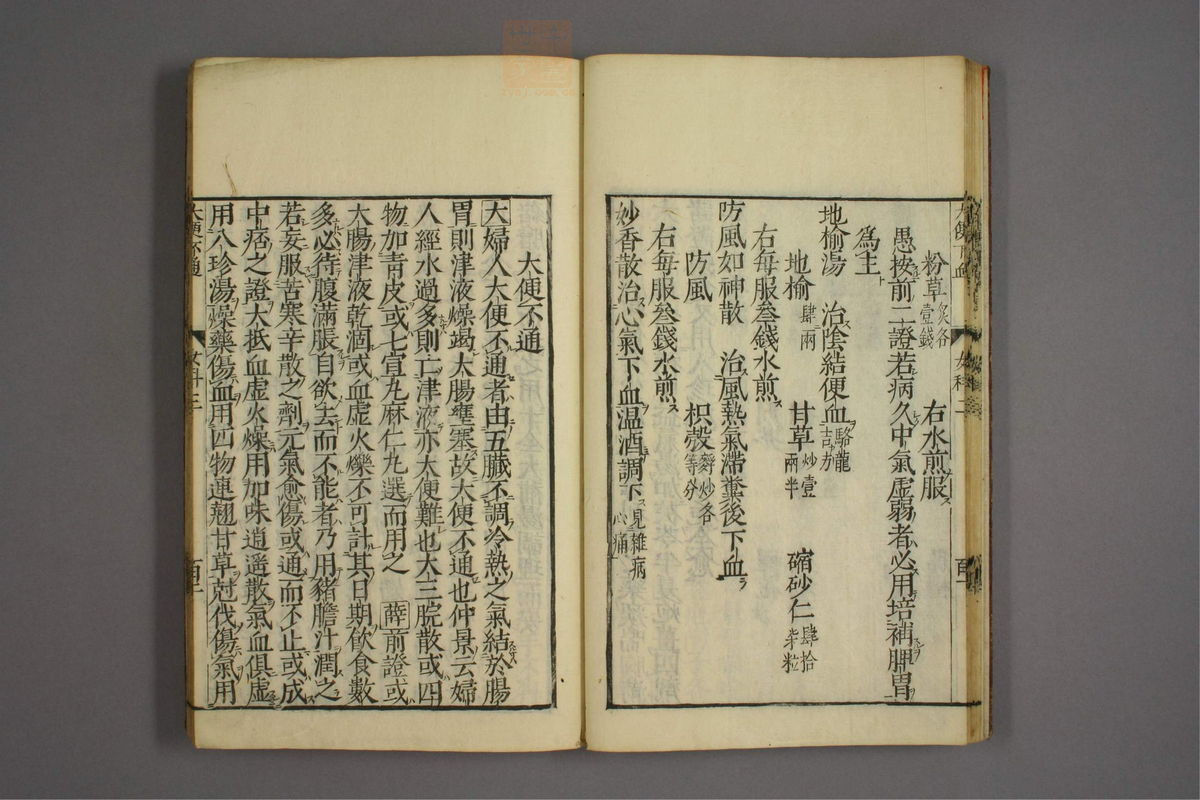 粉草炙各壹錢　右水煎服
愚按前二證若病久中氣虛弱者必用培補脾胃
為主
地榆湯　治陰結便血駱龍吉方
地榆肆兩　甘草炒壹兩半　縮砂仁肆拾柒粒
右每服叁錢水煎
防風如神散　治風熱氣滯糞後下血
防風　枳殼麩炒各等分
右每服叁錢水煎
妙香散治心氣下血温酒調下見雜病心痛
大便不通
大婦人大便不通者由五臟不調冷熱之氣結於腸
胃則津液燥竭大腸壅塞故大便不通也仲景云婦
人經水過多則亡津液亦大便難也大三脘散或四
物加青皮或七宣丸麻仁丸選而用之　薛前證或
大腸津液乾涸或血虛火爍不可計其日期飲食數
多必待腹滿脹自欲去而不能者乃用豬膽汁潤之
若妄服苦寒辛散之劑元氣愈傷或通而不止或成
中痞之證大抵血虛火燥用加味逍遙散氣血俱虛
用八珍湯燥藥傷血用四物連翹甘草尅伐傷氣用